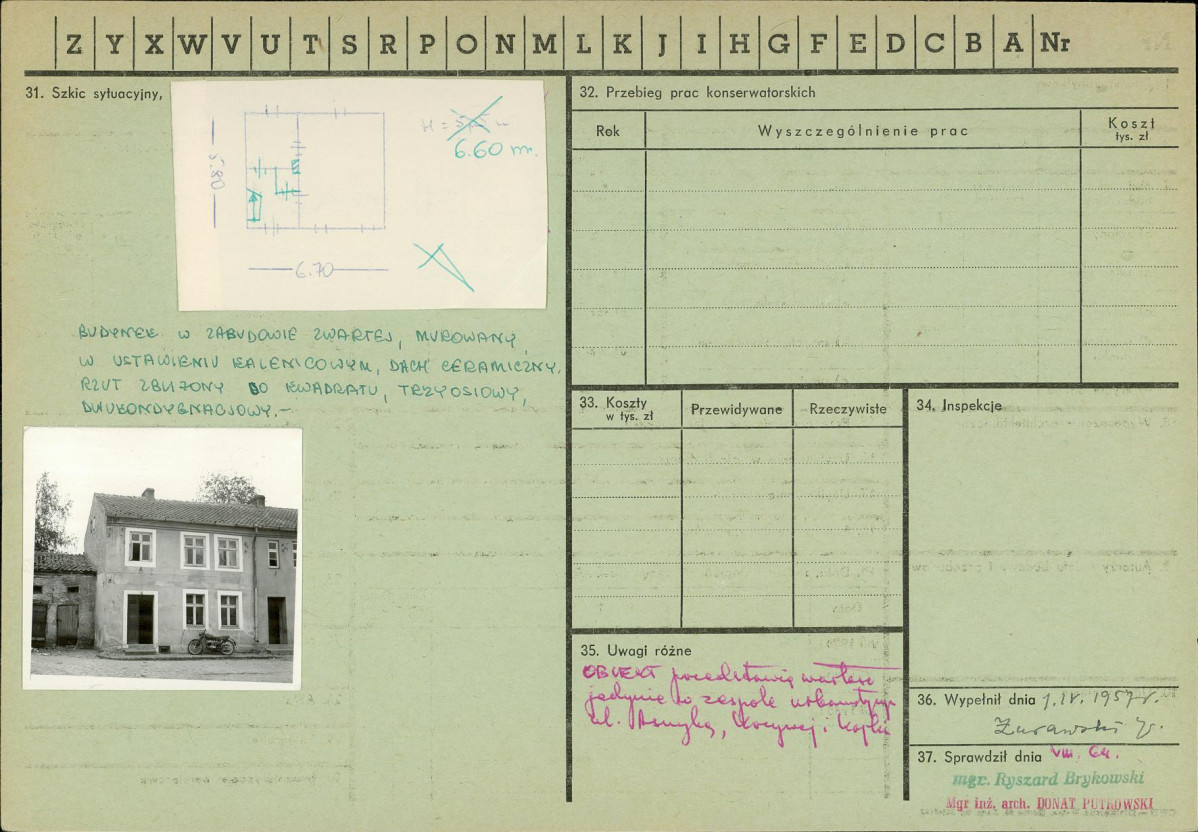 Z Y X W V U T S R P O N M L K J I H G F E D C B A Nr
31. Szkic sytuacyjny,
5.80
H =
6.60 m.
6.70
BUDYNEK W ZABUDOWIE ZWARTEJ, MUROWANY,
W USTAWIENIU KALENICOWYM, DACH CERAMICZNY.
RZUT ZBLIŻONY DO KWADRATU, TRZYOSIOWY,
DWUKONDYGNACJOWY.-
32. Przebieg prac konserwatorskich
Rok
Wyszczególnienie prac
Koszt
tys. zł
33. Koszty
w tys. zł
Przewidywane
Rzeczywiste
34. Inspekcje
35. Uwagi różne
OBIEKT przedstawia wartość
jedynie w zespole urbanistycz.
ul. Asnyka, i
36. Wypełnił dnia 1.IV.1957 r.
Żurawski J.
37. Sprawdził dnia VIII. 64.
mgr. Ryszard Brykowski
Mgr inż. arch. DONAT PUTKOWSKI